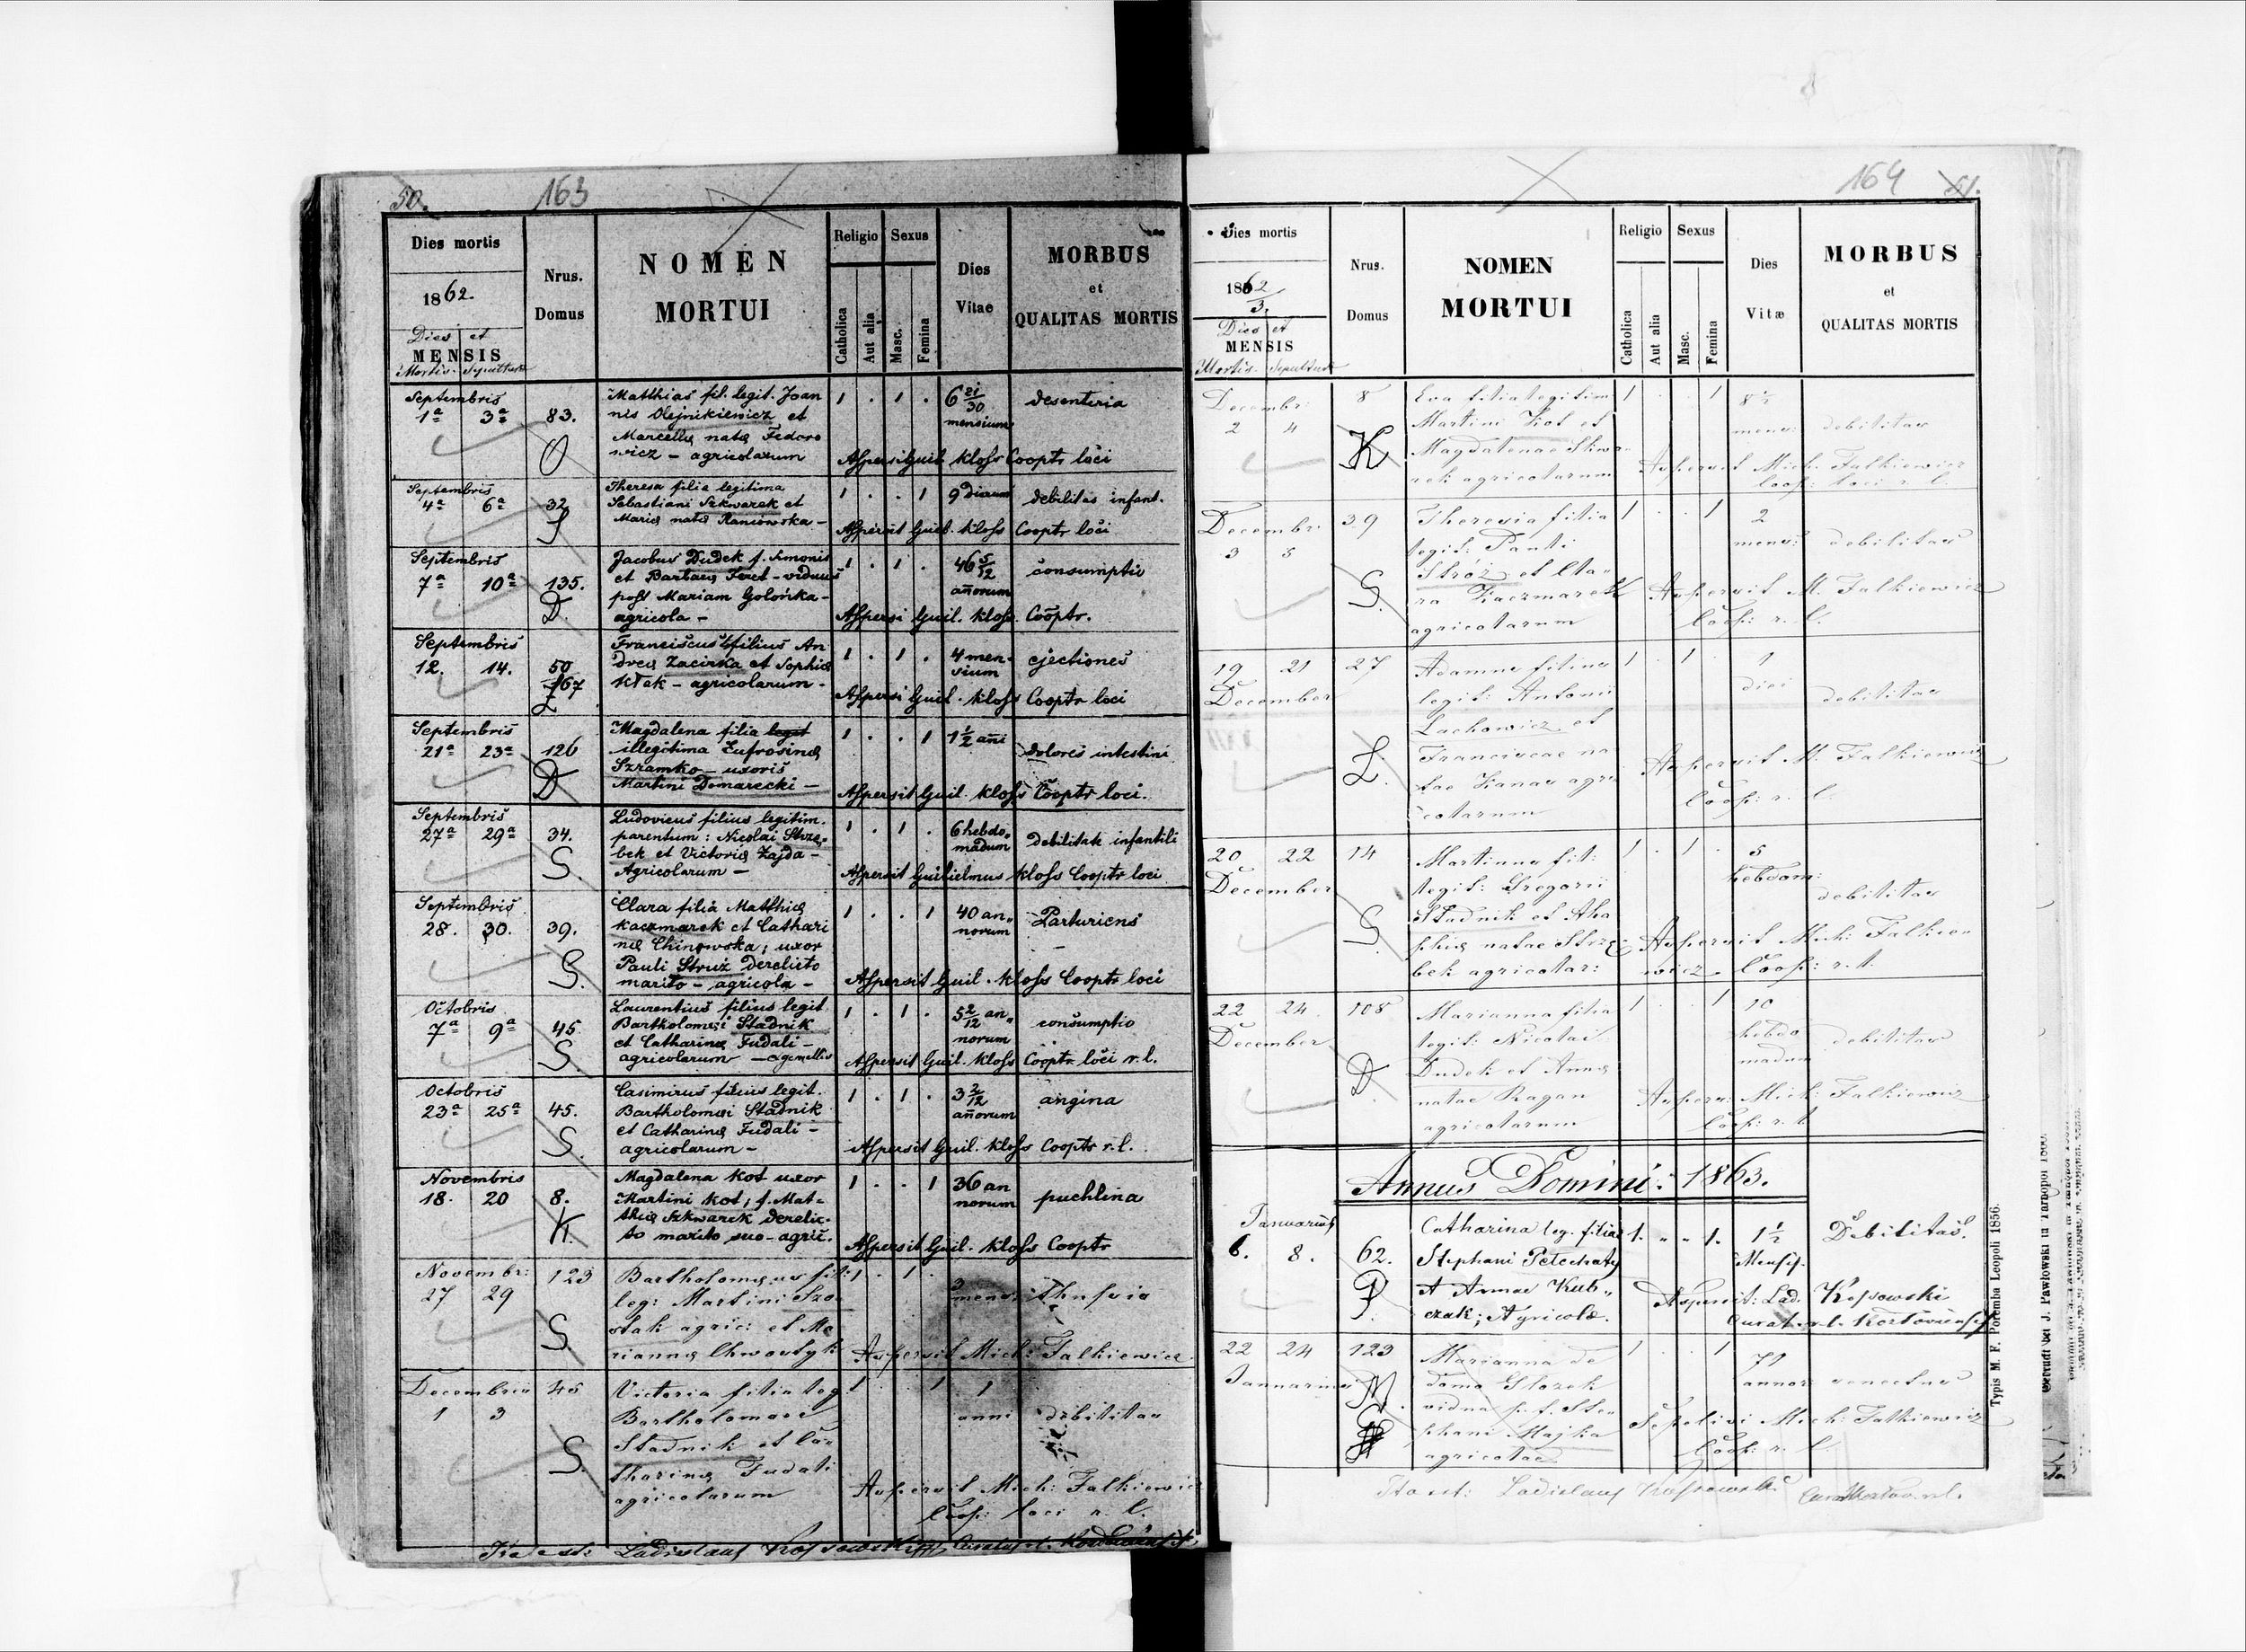 50.
163
Dies mortis
1862.
Dies et
MENSIS
Mortis - Sepulturae
Nrus.
Domus
NOMEN
MORTUI
Religio
Sexus
Catholica
Aut alia
Masc.
Femina
Dies
Vitae
MORBUS
et
QUALITAS MORTIS
Septembris
1ª 3ª 83.
O
Matthias fil. legit. Joan
nis Olejnikiewicz et
Marcellę natę Fedoro
wicz – agricolarum
1 . 1 . 6 21/30
mensium
desenteria
Aspersi Guil. Kloss Cooptr loci
Septembris
4ª 6ª 32
S
Theresa filia legitima
Sebastiani Szkwarek et
Marię natę Raniowska –
1 . . 1 9 dierum
debilitas infant.
Aspersit Guil. Kloss Cooptr loci
Septembris
7ª 10ª 135.
D.
Jacobus Dudek f. Simonis
et Barbarę Feret – viduus
post Mariam Golońka –
agricola –
1 . 1 . 46 5/12
annorum
consumptio
Aspersi Guil. Kloss. Cooptr.
Septembris
12. 14. 50
167
Z
Franciscus filius An
dreę Zacirka et Sophię
Kłek – agricolarum –
1 . 1 . 4 men-
sium
ejectiones
Aspersi Guil. Kloss Cooptr loci
Septembris
21ª 23ª 126
D
Magdalena filia legit
illegitima Eufrosinę
Szramko – uxoris
Martini Domarecki –
1 . . 1 1½ añi
dolores intestini
Aspersit Guil. Kloss Cooptr loci.
Septembris
27ª 29ª 34.
S.
Ludovicus filius legitim.
parentum: Nicolai Strzę-
bek et Victorię Zajda –
Agricolarum –
1 . 1 . 6 hebdo„
madum
debilitate infantili
Aspersit Guilielmus Kloss Cooptr loci
Septembris
28. 30. 39.
S.
Clara filia Matthię
Kaczmarek et Cathari
nę Chinowska; uxor
Pauli Struż derelicto
marito – agricola –
1 . . 1 40 an„
norum
Parturiens
Aspersit Guil. Kloss Cooptr loci
Octobris
7ª 9ª 45.
S
Laurentius filius legit
Bartholomęi Stadnik
et Catharinę Fudali –
agricolarum – gemellis
1 . 1 . 5 2/12 an„
norum
consumptio
Aspersit Guil. Kloss Cooptr loci r.l.
Octobris
23ª 25ª 45.
S.
Casimirus filius legit.
Bartholomęi Stadnik
et Catharinę Fudali –
agricolarum –
1 . 1 . 3 2/12
annorum
angina
Aspersit Guil. Kloss Cooptr r.l.
Novembris
18. 20 8.
K.
Magdalena Kot uxor
Martini Kot; f. Mat-
thię Szkwarek derelic-
to marito suo – agric.
1 . . 1 36 an
norum
puchlina
Aspersit Guil. Kloss Cooptr
Novembr:
27 29 123
S.
Bartholomęus fil:
leg: Martini Szo-
stak agric: et Ma
riannę Chwostyk
1 . 1 . 3
mens:
Aspersit Mich: Falkiewicz
Decembris
1 3 45
S.
Victoria filia leg
Bartholomaei
Stadnik et Ca-
tharinę Fudali
agricolarum
1 . 1 1
anni
debilitas
Aspersit Mich: Falkiewicz
Coop: loci r. l.
Ita est: Ladislaus Kossowski
164
51.
Dies mortis
1862
3.
Dies et
MENSIS
Mortis - Sepulturae
Nrus.
Domus
NOMEN
MORTUI
Religio
Sexus
Catholica
Aut alia
Masc.
Femina
Dies
Vitæ
MORBUS
et
QUALITAS MORTIS
Decembr:
2 4 8
K
Eva filia legitim
Martini Kot et
Magdalenae Skwa-
rek agricolarum
1 . . 1 8½
mens:
debilitas
Aspersit Mich: Falkiewicz
Coop: loci r. l.
Decembr:
3 5 39
S.
Theresia filia
legit: Pauli
Stróż et Cla-
ra Kaczmarek
agricolarum
1 . . 1 2
mens:
debilitas
Aspersit M. Falkiewicz
Coop: r. l.
19 21 27
December
L.
Adamus filius
legit: Antonii
Lachowicz et
Franciscae na
tae Kanas agri
colarum
1 . 1 . 1
diei
debilitas
Aspersit M. Falkiewicz
Coop: r. l.
20 22 14
December
S.
Martinus fil:
legit: Gregorii
Stadnik et Aga
phię natae Strzę-
bek agricolar:
1 . 1 . 5
hebdom:
debilitas
Aspersit Mich: Falkie-
wicz Coop: r. l.
22 24. 108
December
D.
Marianna filia
legit: Nicolai
Dudek et Annę
natae Ragan
agricolarum
1 . . 1 10
hebdo
madum
debilitas
Aspers: Mich: Falkiewicz
Coop: r. l.
Annus Domini: 1863.
Januarius
6. 8. 62.
P.
Catharina leg. filia
Stephani Petechaty
et Annae Kub„
czak; Agricolę.
1. „ „ 1. 1½
Mensis.
Debilitas.
Aspersit: Lad. Kossowski
Curat. r. l. Kozloviensis
22 24 123
Januarius
M.
Marianna de
domo Slozek
vidua p. f. Ste-
phani Majka
agricolae
1 . . 1 71
annor:
senectus
Sepelivi Mich: Falkiewicz
Coop: r. l.
Ita est: Ladislaus Kossowski
Typis M. F. Poremba Leopoli 1856.
Gedruckt bei J. Pawłowski in Tarnopol 1860.